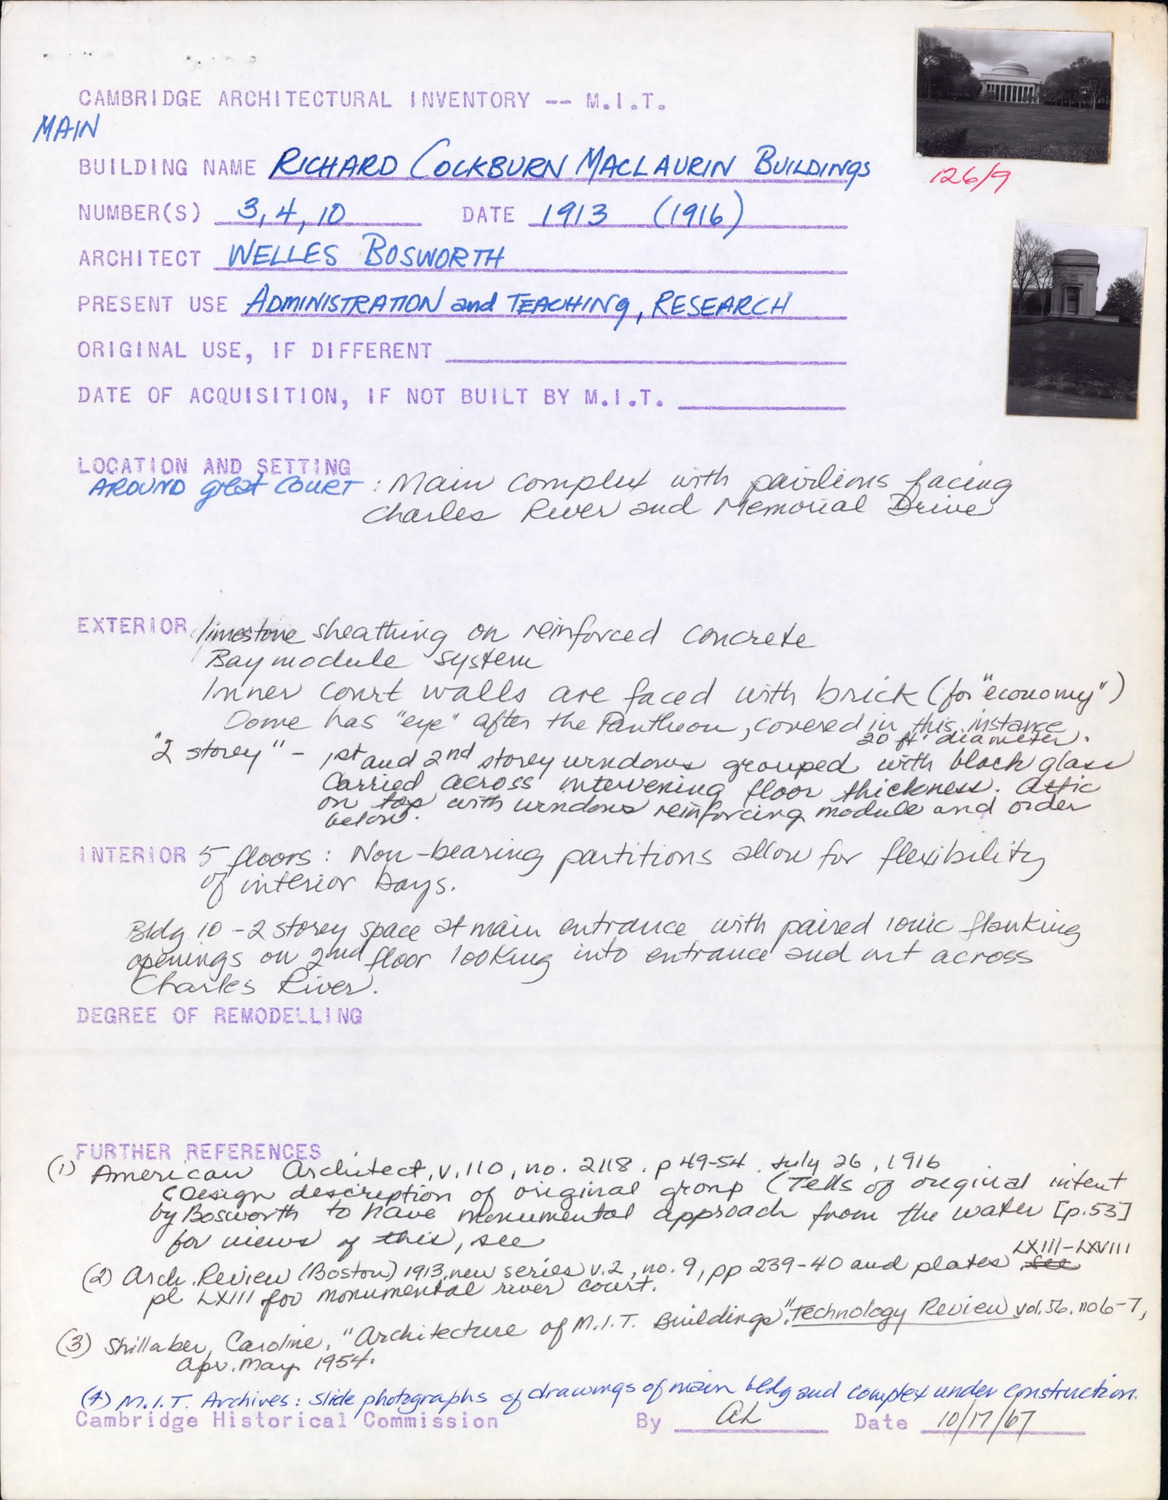 CAMBRIDGE ARCHITECTURAL INVENTORY -- M.I.T.
MAIN
BUILDING NAME RICHARD COCKBURN MACLAURIN BUILDINGS
126/9
NUMBER(S) 3, 4, 10 DATE 1913 (1916)
ARCHITECT WELLES BOSWORTH
PRESENT USE ADMINISTRATION and TEACHING, RESEARCH
ORIGINAL USE, IF DIFFERENT
DATE OF ACQUISITION, IF NOT BUILT BY M.I.T.
LOCATION AND SETTING
AROUND great COURT : Main complex with pavilions facing
Charles River and Memorial Drive
EXTERIOR limestone sheathing on reinforced concrete
Bay module system
Inner court walls are faced with brick (for "economy")
Dome has "eye" after the Pantheon, covered in this instance
20 ft diameter.
"2 storey" - 1st and 2nd storey windows grouped with black glass
carried across intervening floor thickness. Attic
on top with windows reinforcing module and order
below.
INTERIOR 5 floors : Non-bearing partitions allow for flexibility
of interior bays.
Bldg 10 - 2 storey space at main entrance with paired ionic flanking
openings on 2nd floor looking into entrance and out across
Charles River.
DEGREE OF REMODELLING
FURTHER REFERENCES
(1) American Architect, v.110, no. 2118, p 49-54, July 26, 1916
Design description of original group (Tells of original intent
by Bosworth to have monumental approach from the water [p.53]
for views of this, see
LXIII-LXVIII
(2) Arch. Review (Boston) 1913, new series v.2, no. 9, pp 239-40 and plates see
pl LXIII for monumental river court.
(3) Shillaber, Caroline, "Architecture of M.I.T. Buildings", Technology Review vol.56. no 6-7,
Apr. May 1954.
(4) M.I.T. Archives : slide photographs of drawings of main bldg and complex under construction.
Cambridge Historical Commission By AL Date 10/17/67